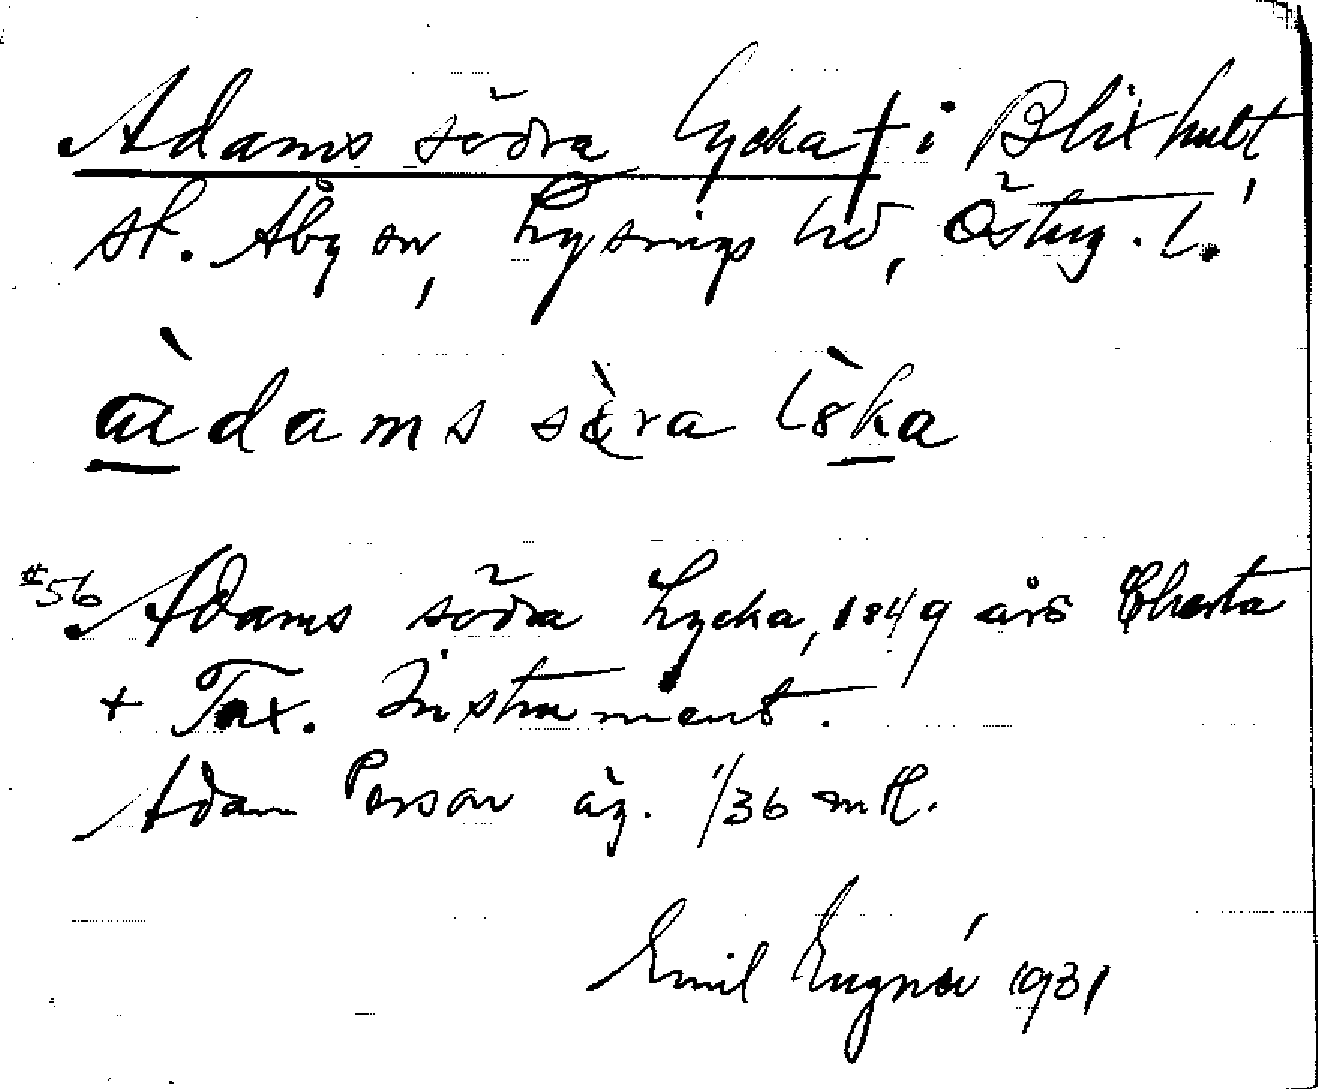 Adams södra lycka † i Blixhult
st. Åby sn, Lysings hd, Österg. l.
àdams sèra lỳka
#56 Adams södra Lycka, 1849 års Charta
+ Tax. Instrument.
Adam Person äg. 1/36 mtl.
Emil Eugnér 1931